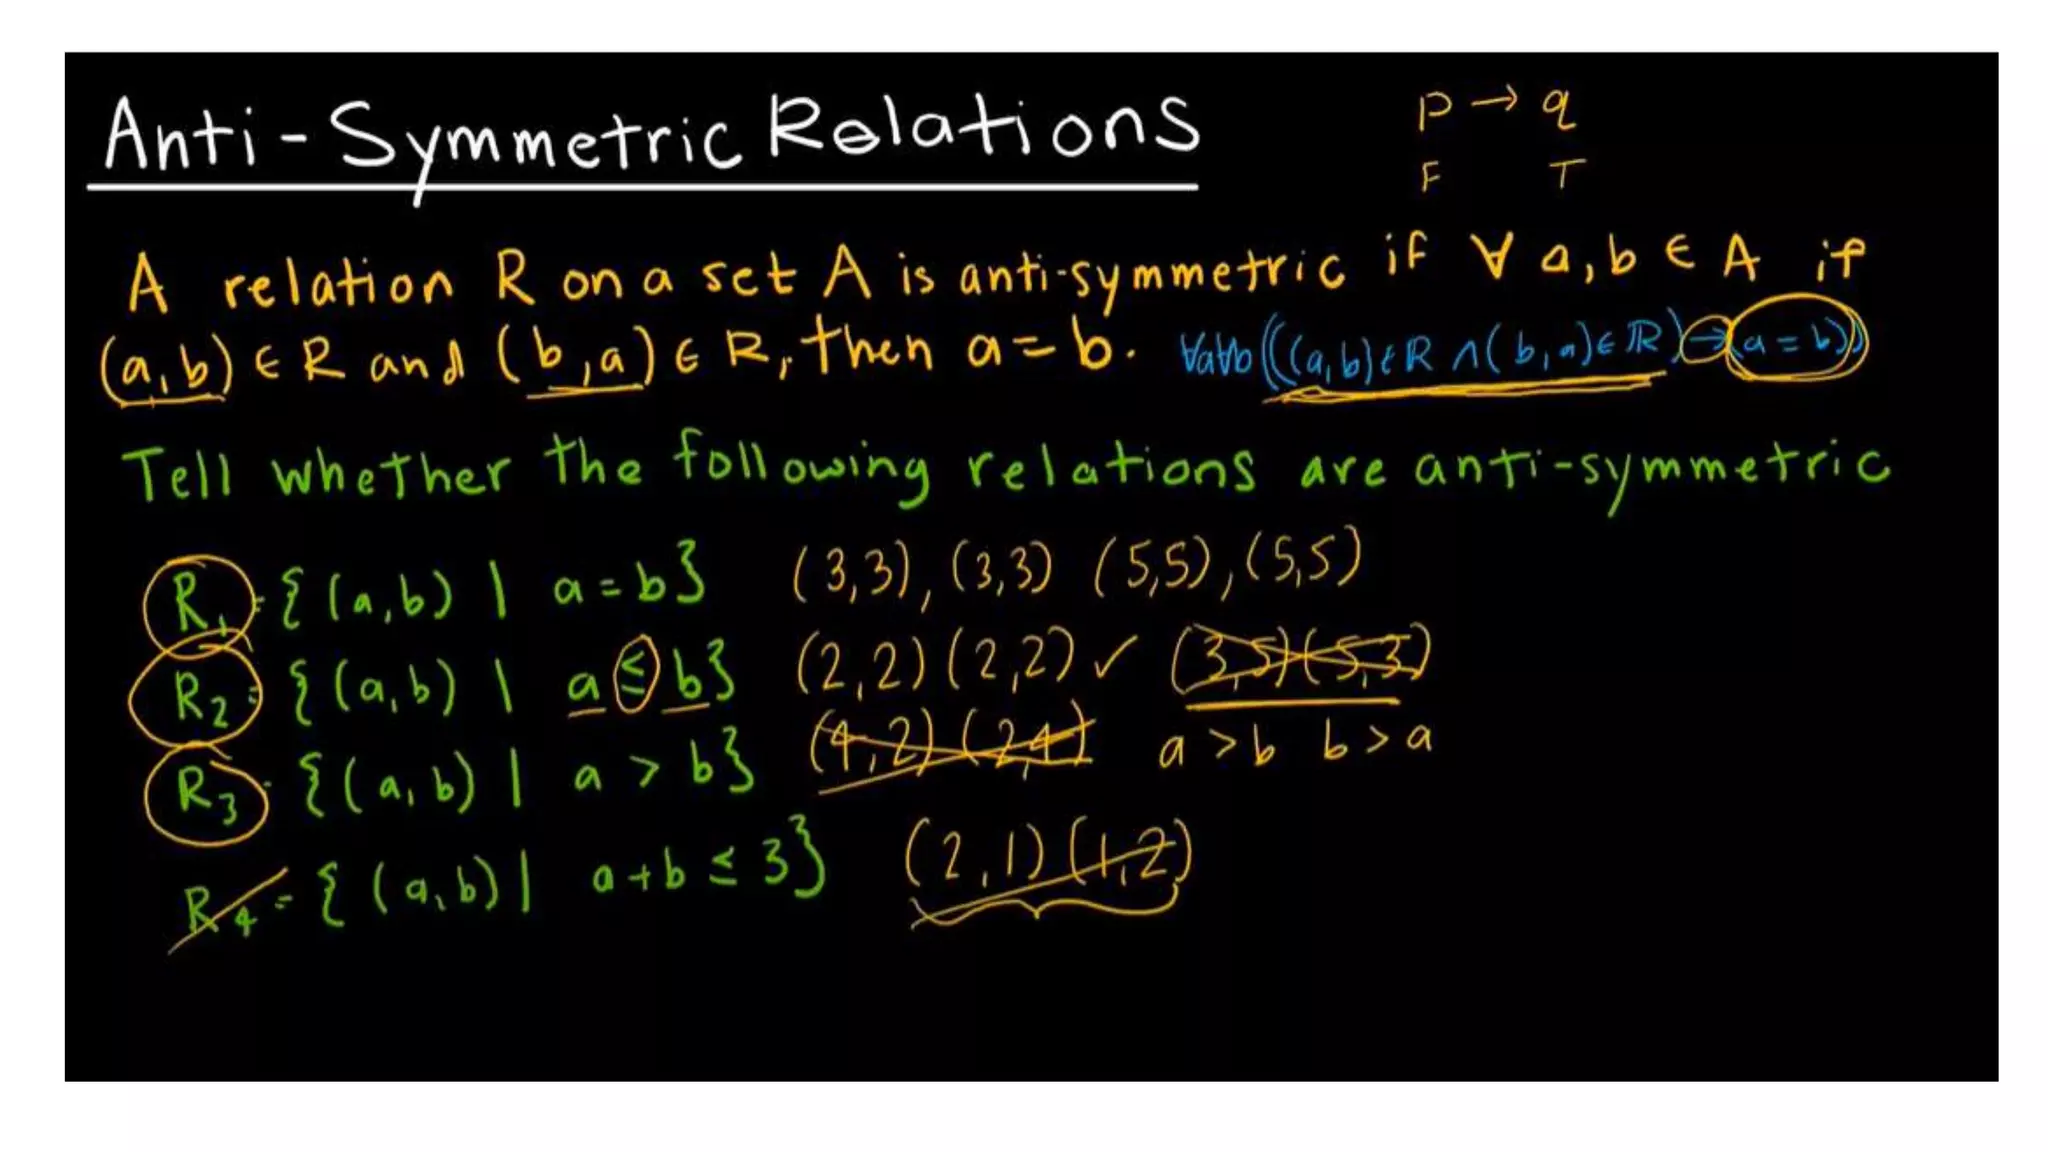 Anti-Symmetric Relations
p → q
F T
A relation R on a set A is anti-symmetric if ∀ a,b ∈ A if
(a,b) ∈ R and (b,a) ∈ R, then a = b. ∀a∀b(((a,b) ∈ R ∧ (b,a) ∈ R) → (a = b))
Tell whether the following relations are anti-symmetric
R₁ = {(a,b) | a = b} (3,3), (3,3) (5,5), (5,5)
R₂ = {(a,b) | a ≤ b} (2,2) (2,2) ✓ (3,5) (5,3)
R₃ = {(a,b) | a > b} (4,2) (2,4) a > b b > a
R₄ = {(a,b) | a + b ≤ 3} (2,1) (1,2)